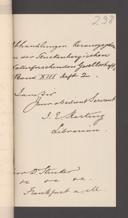 298
Abhandlungen herausgegeben
von der Senckenbergischen
Naturforschenden Gesellschaft
Band XIII Heft 2.
I am Sir
Your obedient Servant
J. E. Harting
Librarian.
Frankfurt a/M